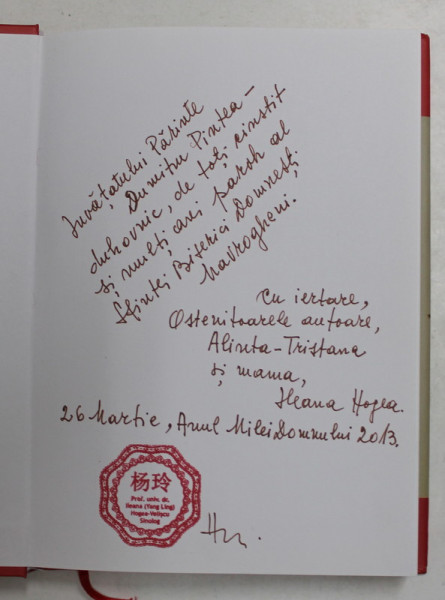 Învățatului Părinte
Dumitru Pintea –
duhovnic, de toți cinstit
și mulți ani paroh al
Sfintei Biserici Domnești
Mavrogheni.
cu iertare,
Ostenitoarele autoare,
Alinta-Tristana
și mama,
Ileana Hogea.
26 Martie, Anul Milei Domnului 2013.
杨玲
Prof. univ. dr.
Ileana (Yang Ling)
Hogea-Velișcu
Sinolog